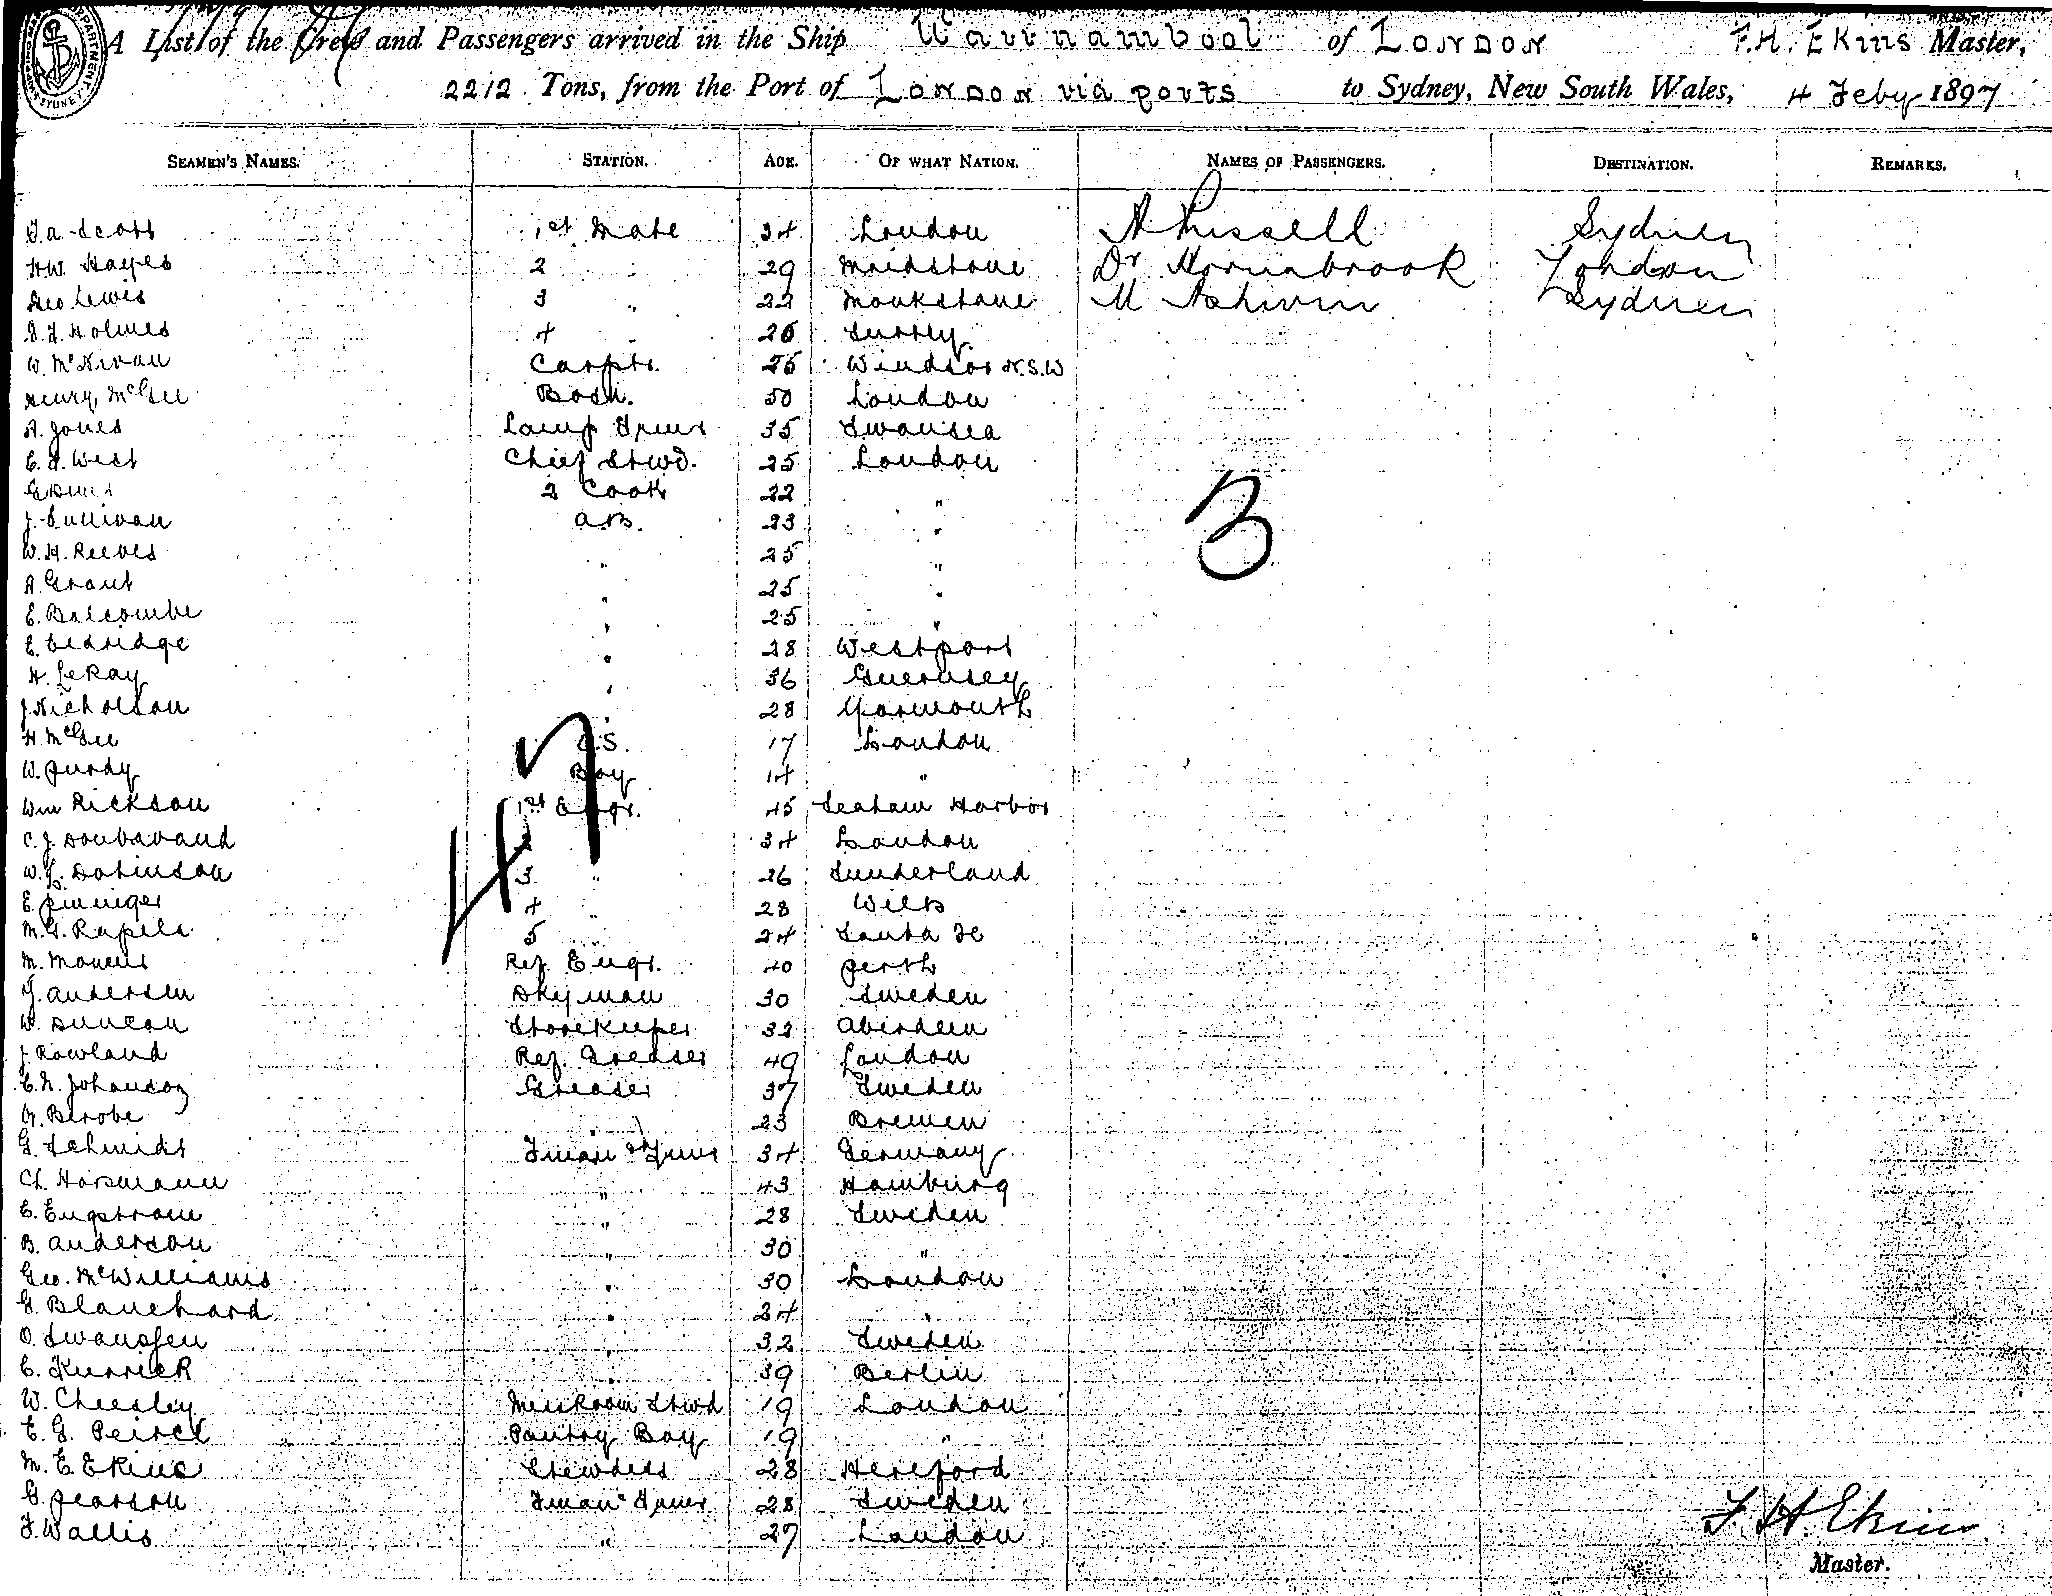 A List of the Crew and Passengers arrived in the Ship Warrnambool of London F.H. Ekins Master,
2212 Tons, from the Port of London via ports to Sydney, New South Wales, 4 Feby 1897
SEAMEN'S NAMES. STATION. AGE. OF WHAT NATION. NAMES OF PASSENGERS. DESTINATION. REMARKS.
Scott 1st Mate 34 London A Russell Sydney
H.W. Hayes 2 " 29 Maidstone Dr Hornabrook London
Geo Lewis 3 " 22 Monkstone M Ashwin Sydney
Holmes 4 " 26 Surrey
W. Carptr. 26 Windsor N.S.W
Henry McGee Bosn. 50 London
A. Jones Lamp Trmr 35 Swansea
E. A. West Chief Stwd. 25 London
2 Cook 22 "
J. Sullivan A.B. 23 "
W. H. Reeves " 25 "
A. Grant " 25 "
E. Balcombe " 25 "
E. Eldridge " 28 Westport
H. LeRay " 36 Guernsey
J Nicholson " 28 Yarmouth
H McGee O.S. 17 London
W. Purdy Boy 14 "
Wm Rickson 1st Engr. 45 Seaham Harbor
C. J. Doubavand 2 " 34 London
W. L. Dobinson 3 " 26 Sunderland
E. Pinniger 4 " 28 Wilts
M. G. Rapela 5 " 24 Santa Fe
M. Ref. Engr. 40 Perth
J. Andersen Dkyman 30 Sweden
W. Duncan Storekeeper 32 Aberdeen
J Rowland Ref. Greaser 49 London
C. N. Johanson Greaser 37 Sweden
Berobe " 23 Bremen
G. Schmidt Fman & Trmr 34 Germany
Ch. Horsmann " 43 Hamburg
E. Engstrom " 28 Sweden
B. Anderson " 30 "
Geo. McWilliams " 30 London
G. Blanchard " 24 "
O. Swanssen " 32 Sweden
E. Kurrick " 39 Berlin
W. Cheesley Messroom Stwd 19 London
E. G. Peirce Pantry Boy 19 "
M. E Ekins Stewdess 28 Hereford
G. Pearson Fman & Trmr 28 Sweden
F. Wallis " 27 London
3
47
F. H. Ekins
Master.